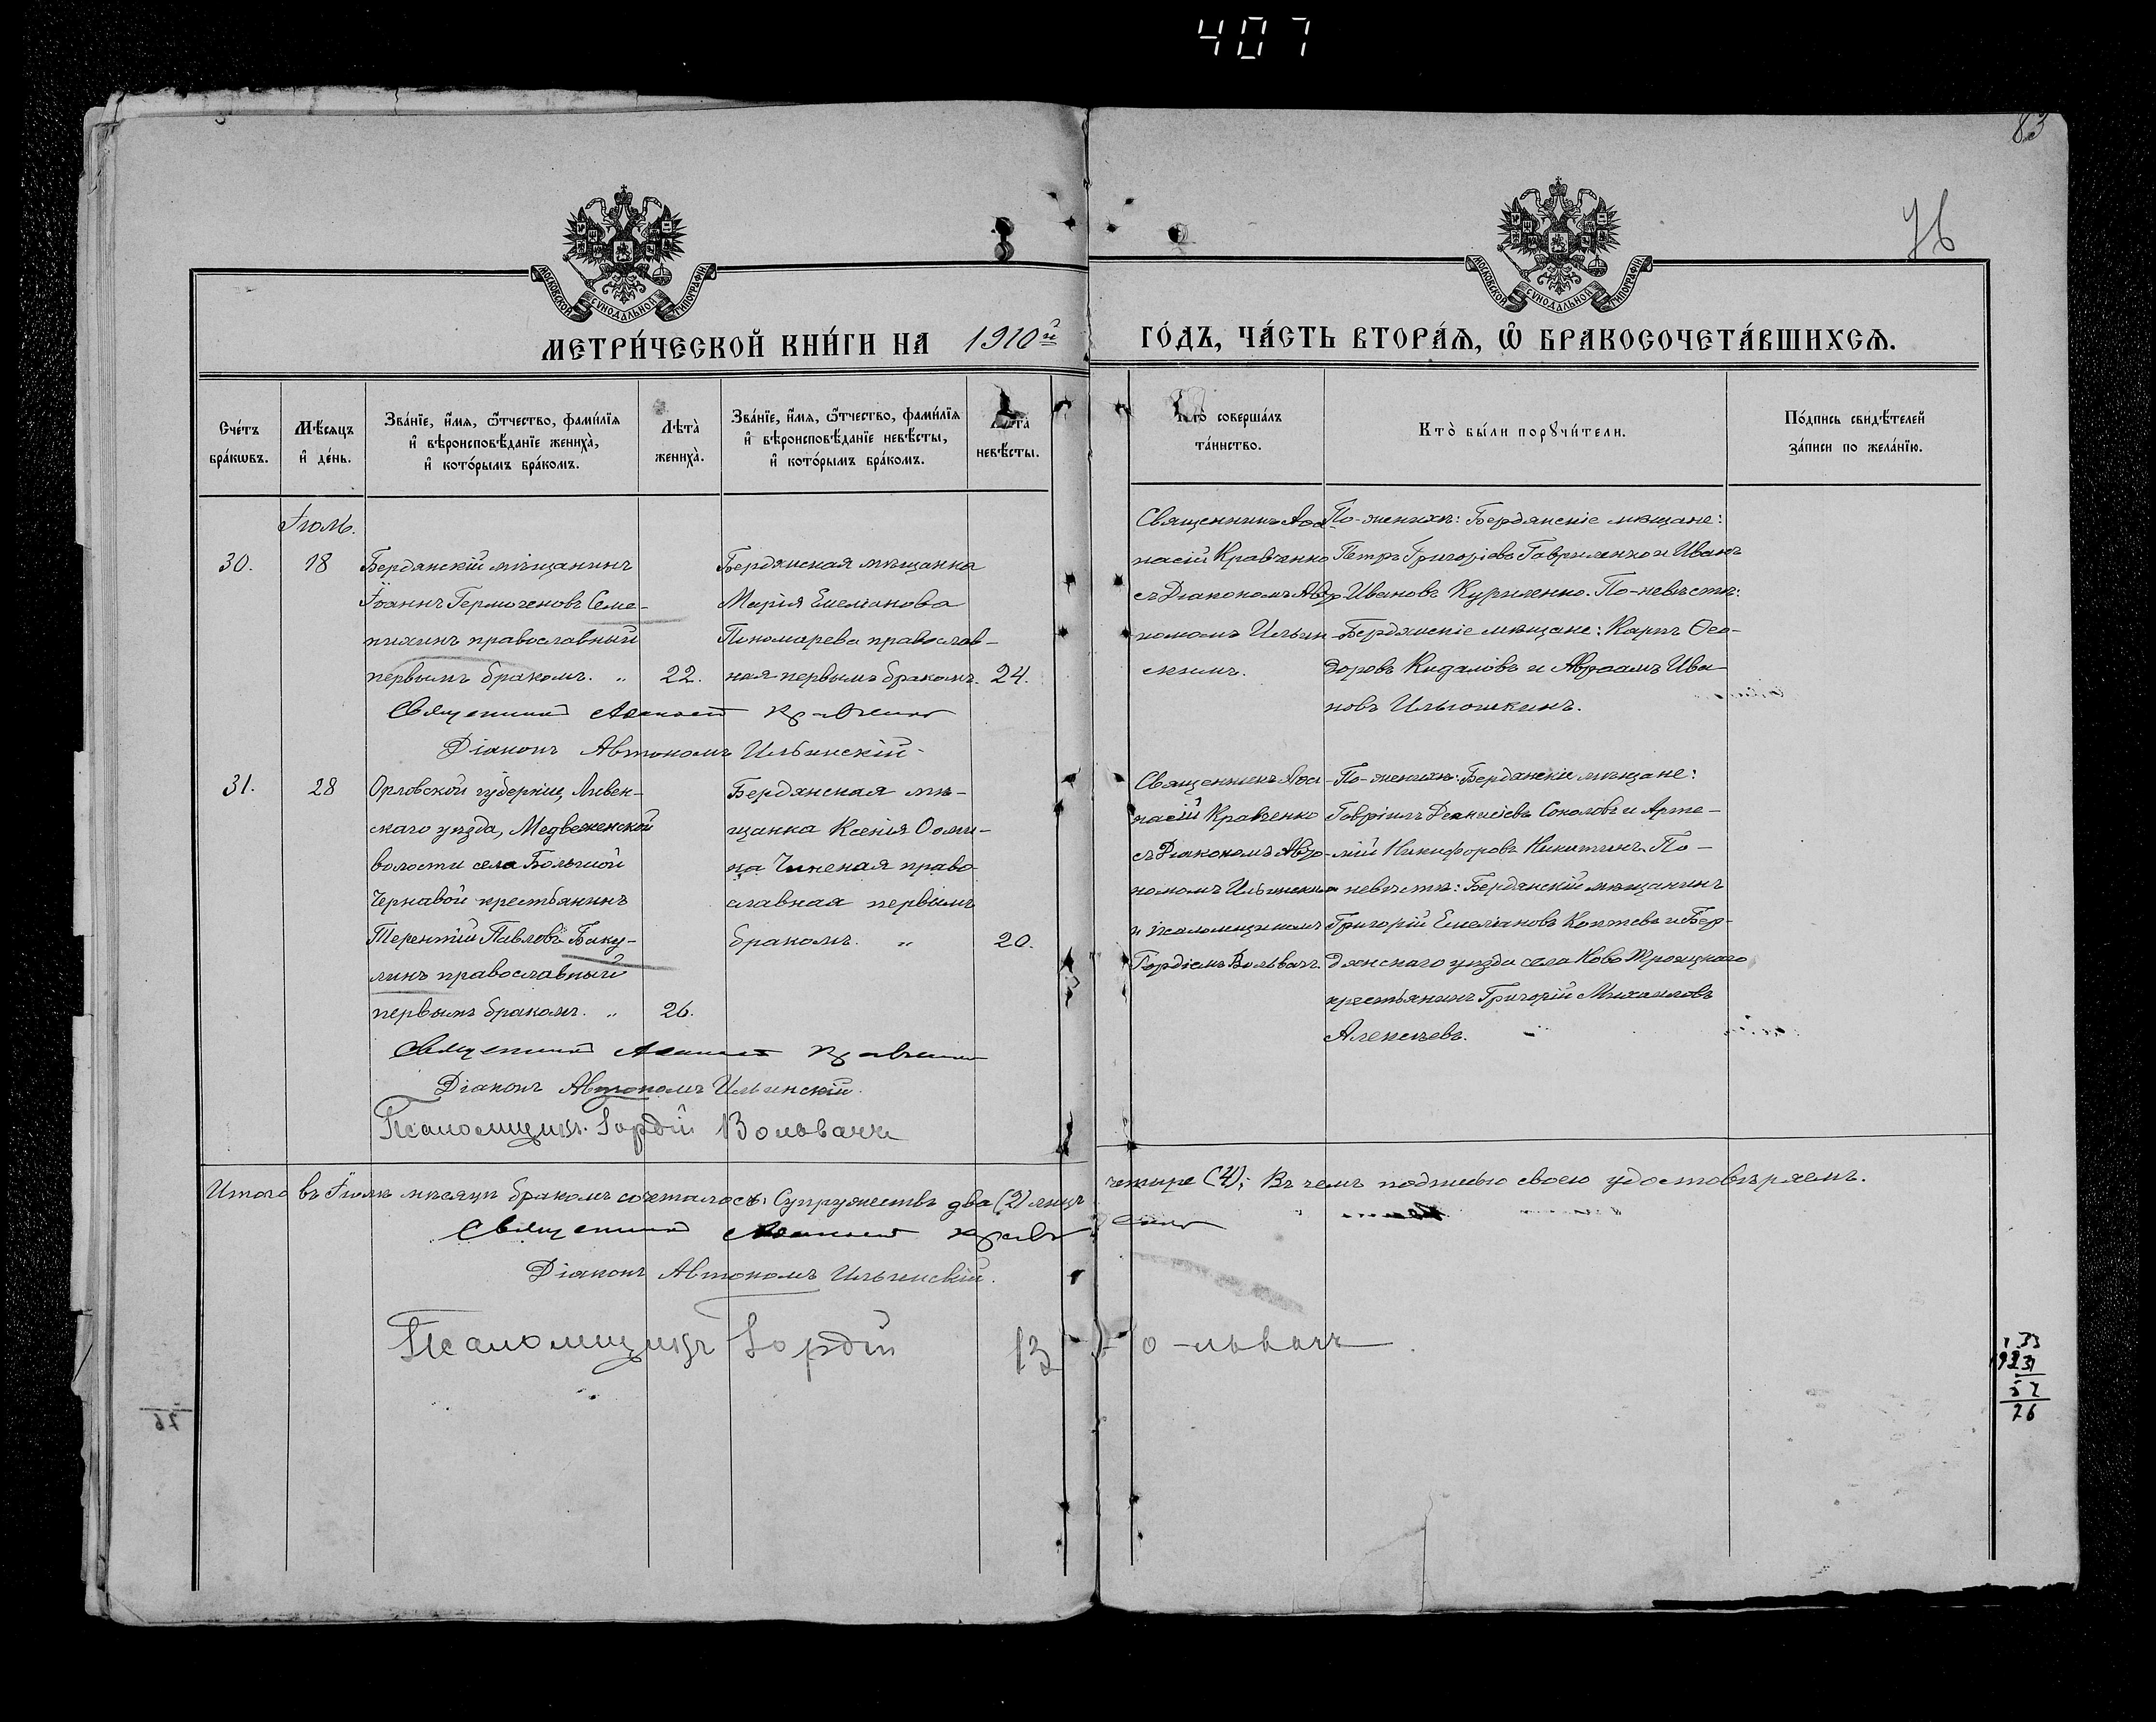 407
83
76
МОСКОВСКОЙ СѴНОДАЛЬНОЙ ТИПОГРАФІИ
МОСКОВСКОЙ СѴНОДАЛЬНОЙ ТИПОГРАФІИ
МЕТРИ́ЧЕСКОЙ КНИ́ГИ НА 1910й ГО́ДЪ, ЧА́СТЬ ВТОРА́Ѧ, Ѽ БРАКОСОЧЕТА́ВШИХСѦ.
Сче́тъ бра́кѡвъ.
Мѣ́сяцъ и҆ де́нь.
Зва́нїе, и҆́мя, ѻ҆́тчество, фами́лїя и҆ вѣроисповѣ́данїе жениха̀, и҆ кото́рымъ бра́комъ.
Лѣта̀ жениха̀.
Зва́нїе, и҆́мя, ѻ҆́тчество, фами́лїя и҆ вѣроисповѣ́данїе невѣ́сты, и҆ кото́рымъ бра́комъ.
Лѣта̀ невѣ́сты.
Кто̀ соверша́лъ та́инство.
Кто̀ бы́ли порꙋчи́тели.
По́дпись свидѣ́телей за́писи по жела́нїю.
Іюль.
30.
18
Бердянскій мѣщанинъ
Іоаннъ Гермогеновъ Семе-
нихинъ православный
первымъ бракомъ. „
22.
Бердянская мѣщанка
Марія Емеліанова
Пономарева православ-
ная первымъ бракомъ.
24.
Священникъ Аѳа-
насій Кравченко
съ Діакономъ Авто-
номомъ Ильин-
скимъ.
По-женихѣ: Бердянскіе мѣщане:
Петръ Григоріевъ Гавриленко и Иванъ
Ивановъ Куриленко. По-невѣстѣ:
Бердянскіе мѣщане: Карпъ Ѳео-
доровъ Кидаловъ и Авраамъ Ива-
новъ Ильюшкинъ.
Священникъ Аѳанасій Кравченко
Діаконъ Автономъ Ильинскій.
31.
28
Орловской губерніи, Ливен-
скаго уѣзда, Медвеженской
волости села Большой
Чернавой крестьянинъ
Терентій Павловъ Баку-
линъ православный
первымъ бракомъ. „
26.
Бердянская мѣ-
щанка Ксенія Ѳоми-
на Чиненая право-
славная первымъ
бракомъ. „
20.
Священникъ Аѳа-
насій Кравченко
съ Діакономъ Авто-
номомъ Ильинскимъ
и псаломщикомъ
Гордіемъ Вольвачъ.
По-женихѣ: Бердянскіе мѣщане:
Гавріилъ Діонисіевъ Соколовъ и Арте-
мій Никифоровъ Никитинъ. По-
невѣстѣ: Бердянскій мѣщанинъ
Григорій Емеліановъ Коптевъ и Бер-
дянскаго уѣзда села Ново Троицкаго
крестьянинъ Григорій Михаиловъ
Алексѣевъ.
Священникъ Аѳанасій Кравченко
Діаконъ Автономъ Ильинскій.
Псаломщикъ Гордій Вольвачъ
Итого въ Іюлѣ мѣсяцѣ бракомъ сочеталось: Супружествъ два (2) лицъ четыре (4); Въ чемъ подписью своею удостовѣряемъ.
Священникъ Аѳанасій Кравченко
Діаконъ Автономъ Ильинскій.
Псаломщикъ Гордій Вольвачъ.
52
26